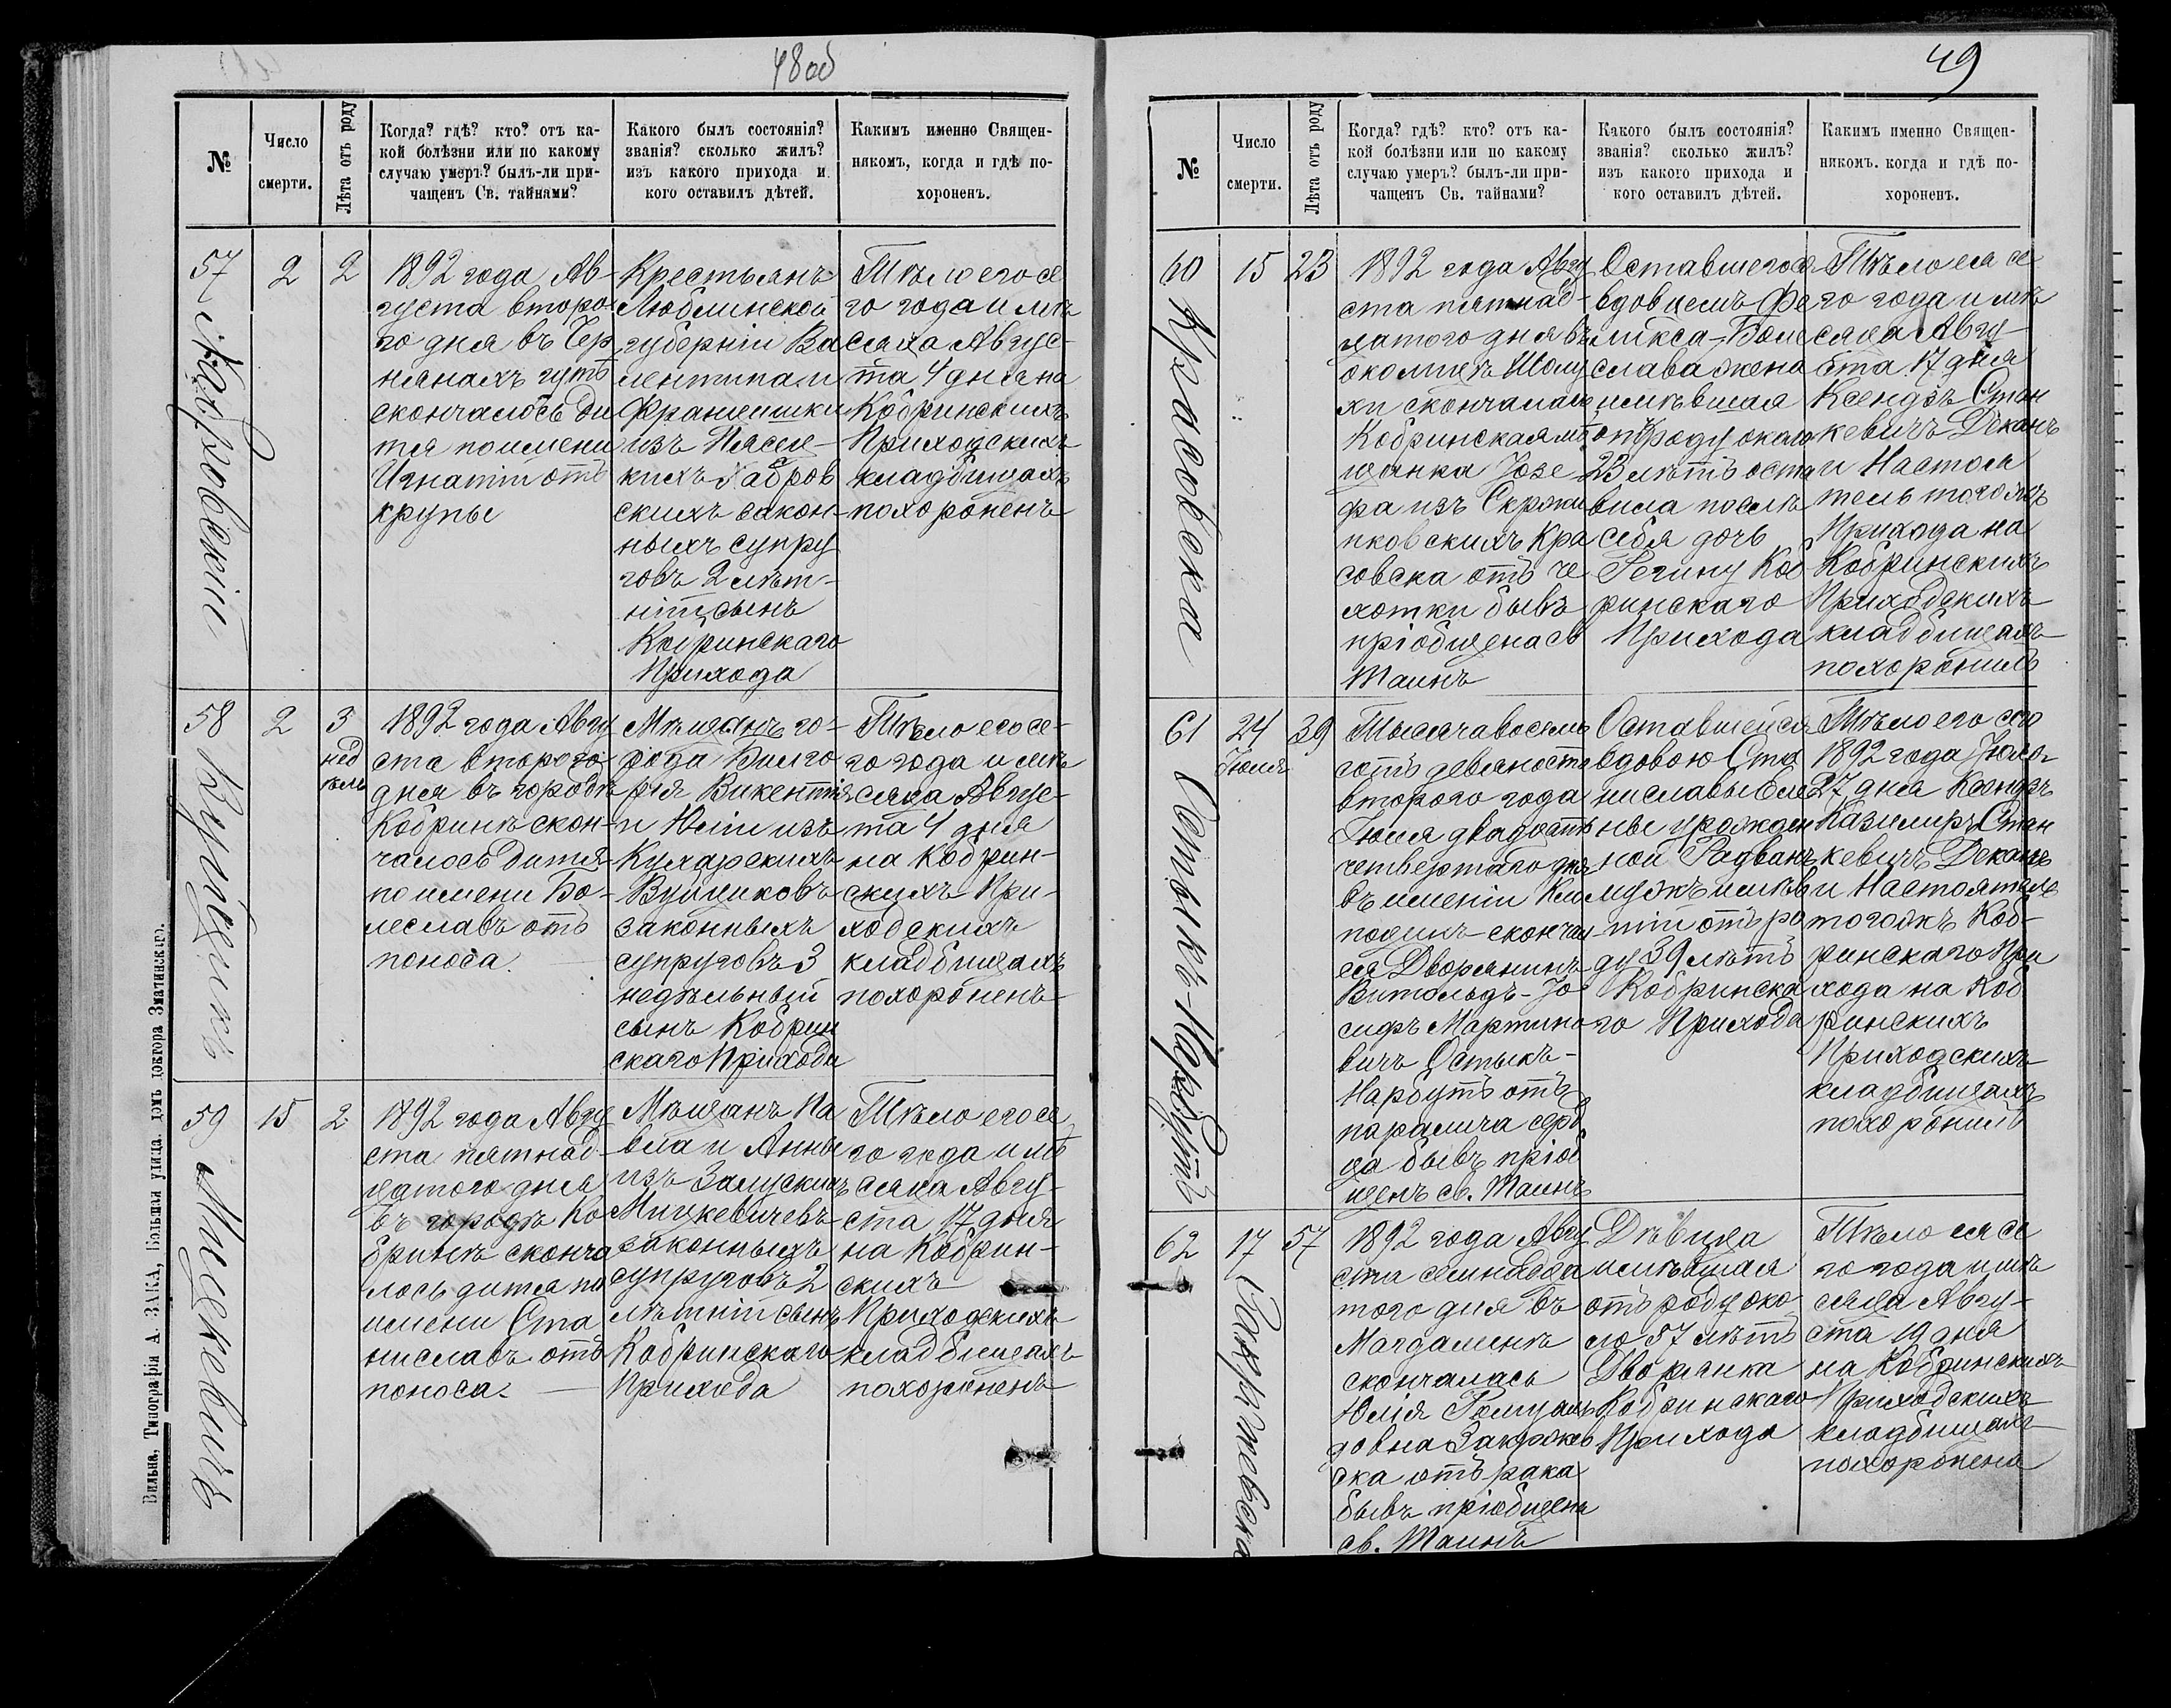 48 об
№
Число
смерти.
Лѣта отъ роду
Когда? гдѣ? кто? отъ ка-
кой болѣзни или по какому
случаю умеръ? былъ-ли при-
чащенъ Св. тайнами?
Какого былъ состоянія?
званія? сколько жилъ?
изъ какого прихода и
кого оставилъ дѣтей.
Какимъ именно Священ-
никомъ, когда и гдѣ по-
хороненъ.
57
2
2
1892 года Ав-
густа второ-
го дня въ Чер
нянахъ гутѣ
скончалось ди
тя по имени
Игнатій отъ
крупы
Крестьянъ
Люблинской
губерніи Ва
лентина и
Францишки
изъ
кихъ
скихъ закон-
ныхъ супру
говъ 2 лѣт-
ній сынъ
Кобринскаго
Прихода
Тѣло его се
го года и мѣ
сяца Авгус-
та 4 дня на
Кобринскихъ
Приходскихъ
кладбищахъ
похороненъ
58 Вуйцикъ
2
3
нед
ѣль
1892 года Авгу
ста второго
дня въ городѣ
Кобринѣ скон-
чалось дитя
по имени Бо-
леславъ отъ
поноса.
Мѣщанъ го-
рода Билго
рія Викентія
и Юліи изъ
Кухарскихъ
Вуйциковъ
законныхъ
супруговъ 3
недѣльный
сынъ Кобрин
скаго Прихода
Тѣло его се-
го года и мѣ
сяца Авгус-
та 4 дня
на Кобрин-
скихъ При-
ходскихъ
кладбищахъ
похороненъ
59 Мицкевичъ
15
2
1892 года Авгу
ста пятнад-
цатого дня
въ городѣ Ко
бринѣ сконча
лось дитя по
имени Ста
ниславъ отъ
поноса.
Мѣщанъ Па
вла и Анны
изъ Залускихъ
Мицкевичевъ
законныхъ
супруговъ 2
лѣтній сынъ
Кобринскаго
Прихода
Тѣло его се
го года и мѣ
сяца Авгу-
ста 17 дня
на Кобрин-
скихъ
Приходскихъ
кладбищахъ
похороненъ
Вильна, Типографія А. ЗАКА, Большая улица, домъ доктора Зматинскаго.
49
№
Число
смерти.
Лѣта отъ роду
Когда? гдѣ? кто? отъ ка-
кой болѣзни или по какому
случаю умеръ? былъ-ли при-
чащенъ Св. тайнами?
Какого былъ состоянія?
званія? сколько жилъ?
изъ какого прихода и
кого оставилъ дѣтей.
Какимъ именно Священ-
никомъ. когда и гдѣ по-
хороненъ.
60 Красовска
15
23
1892 года Авгу
ста пятнад-
цатого дня въ
околицѣ Шолу
хи скончалась
Кобринская мѣ
щанка Юзе
фа изъ Скржи
пковскихъ Кра
совска отъ че
хотки бывъ
пріобщена св
Таинъ
Оставшегося
вдовцемъ Фе
ликса-Боле
слава жена
имѣвшая
отъ роду около
23 лѣтъ оста
вила послѣ
себя дочь
Регину Коб
ринскаго
Прихода
Тѣло ея се
го года и мѣ
сяца Авгу-
ста 17 дня
Ксендзъ Стан
кевичъ Деканъ
и Настоя
тель тогожъ
Прихода на
Кобринскихъ
Приходскихъ
кладбищахъ
похоронилъ
61 Остыкъ-Нарбутъ
24
Іюля
39
Тысяча восемь
сотъ девяносто
второго года
Іюля двадцать
четвертаго дня
въ имѣніи Кли
пошинъ скончал
ся Дворянинъ
Витольдъ-Іо
сифъ Мартино
вичъ Остыкъ-
Нарбутъ отъ
паралича серд
ца бывъ пріоб
щенъ св. Таинъ
Оставшейся
вдовою Ста
ниславы Еле
ны урожден
ной Радванъ
мужъ имѣв
шій отъ ро
ду 39 лѣтъ
Кобринска
го Прихода
Тѣло его сего
1892 года Іюля
27 дня Ксендзъ
Казимиръ Стан
кевичъ Деканъ
и Настоятель
тогожъ Коб-
ринскаго При
хода на Коб
ринскихъ
Приходскихъ
кладбищахъ
похоронилъ
62 Закржевска
17
57
1892 года Авгу
ста семнадца
того дня въ
Магдаленѣ
скончалась
Юлія Ромуаль
довна Закржев
ска отъ рака
бывъ пріобщена
св. Таинъ
Дѣвица
имѣвшая
отъ роду око
ло 57 лѣтъ
Дворянка
Кобринскаго
Прихода
Тѣло ея се
го года и мѣ
сяца Авгу-
ста 19 дня
на Кобринскихъ
Приходскихъ
кладбищахъ
похоронена